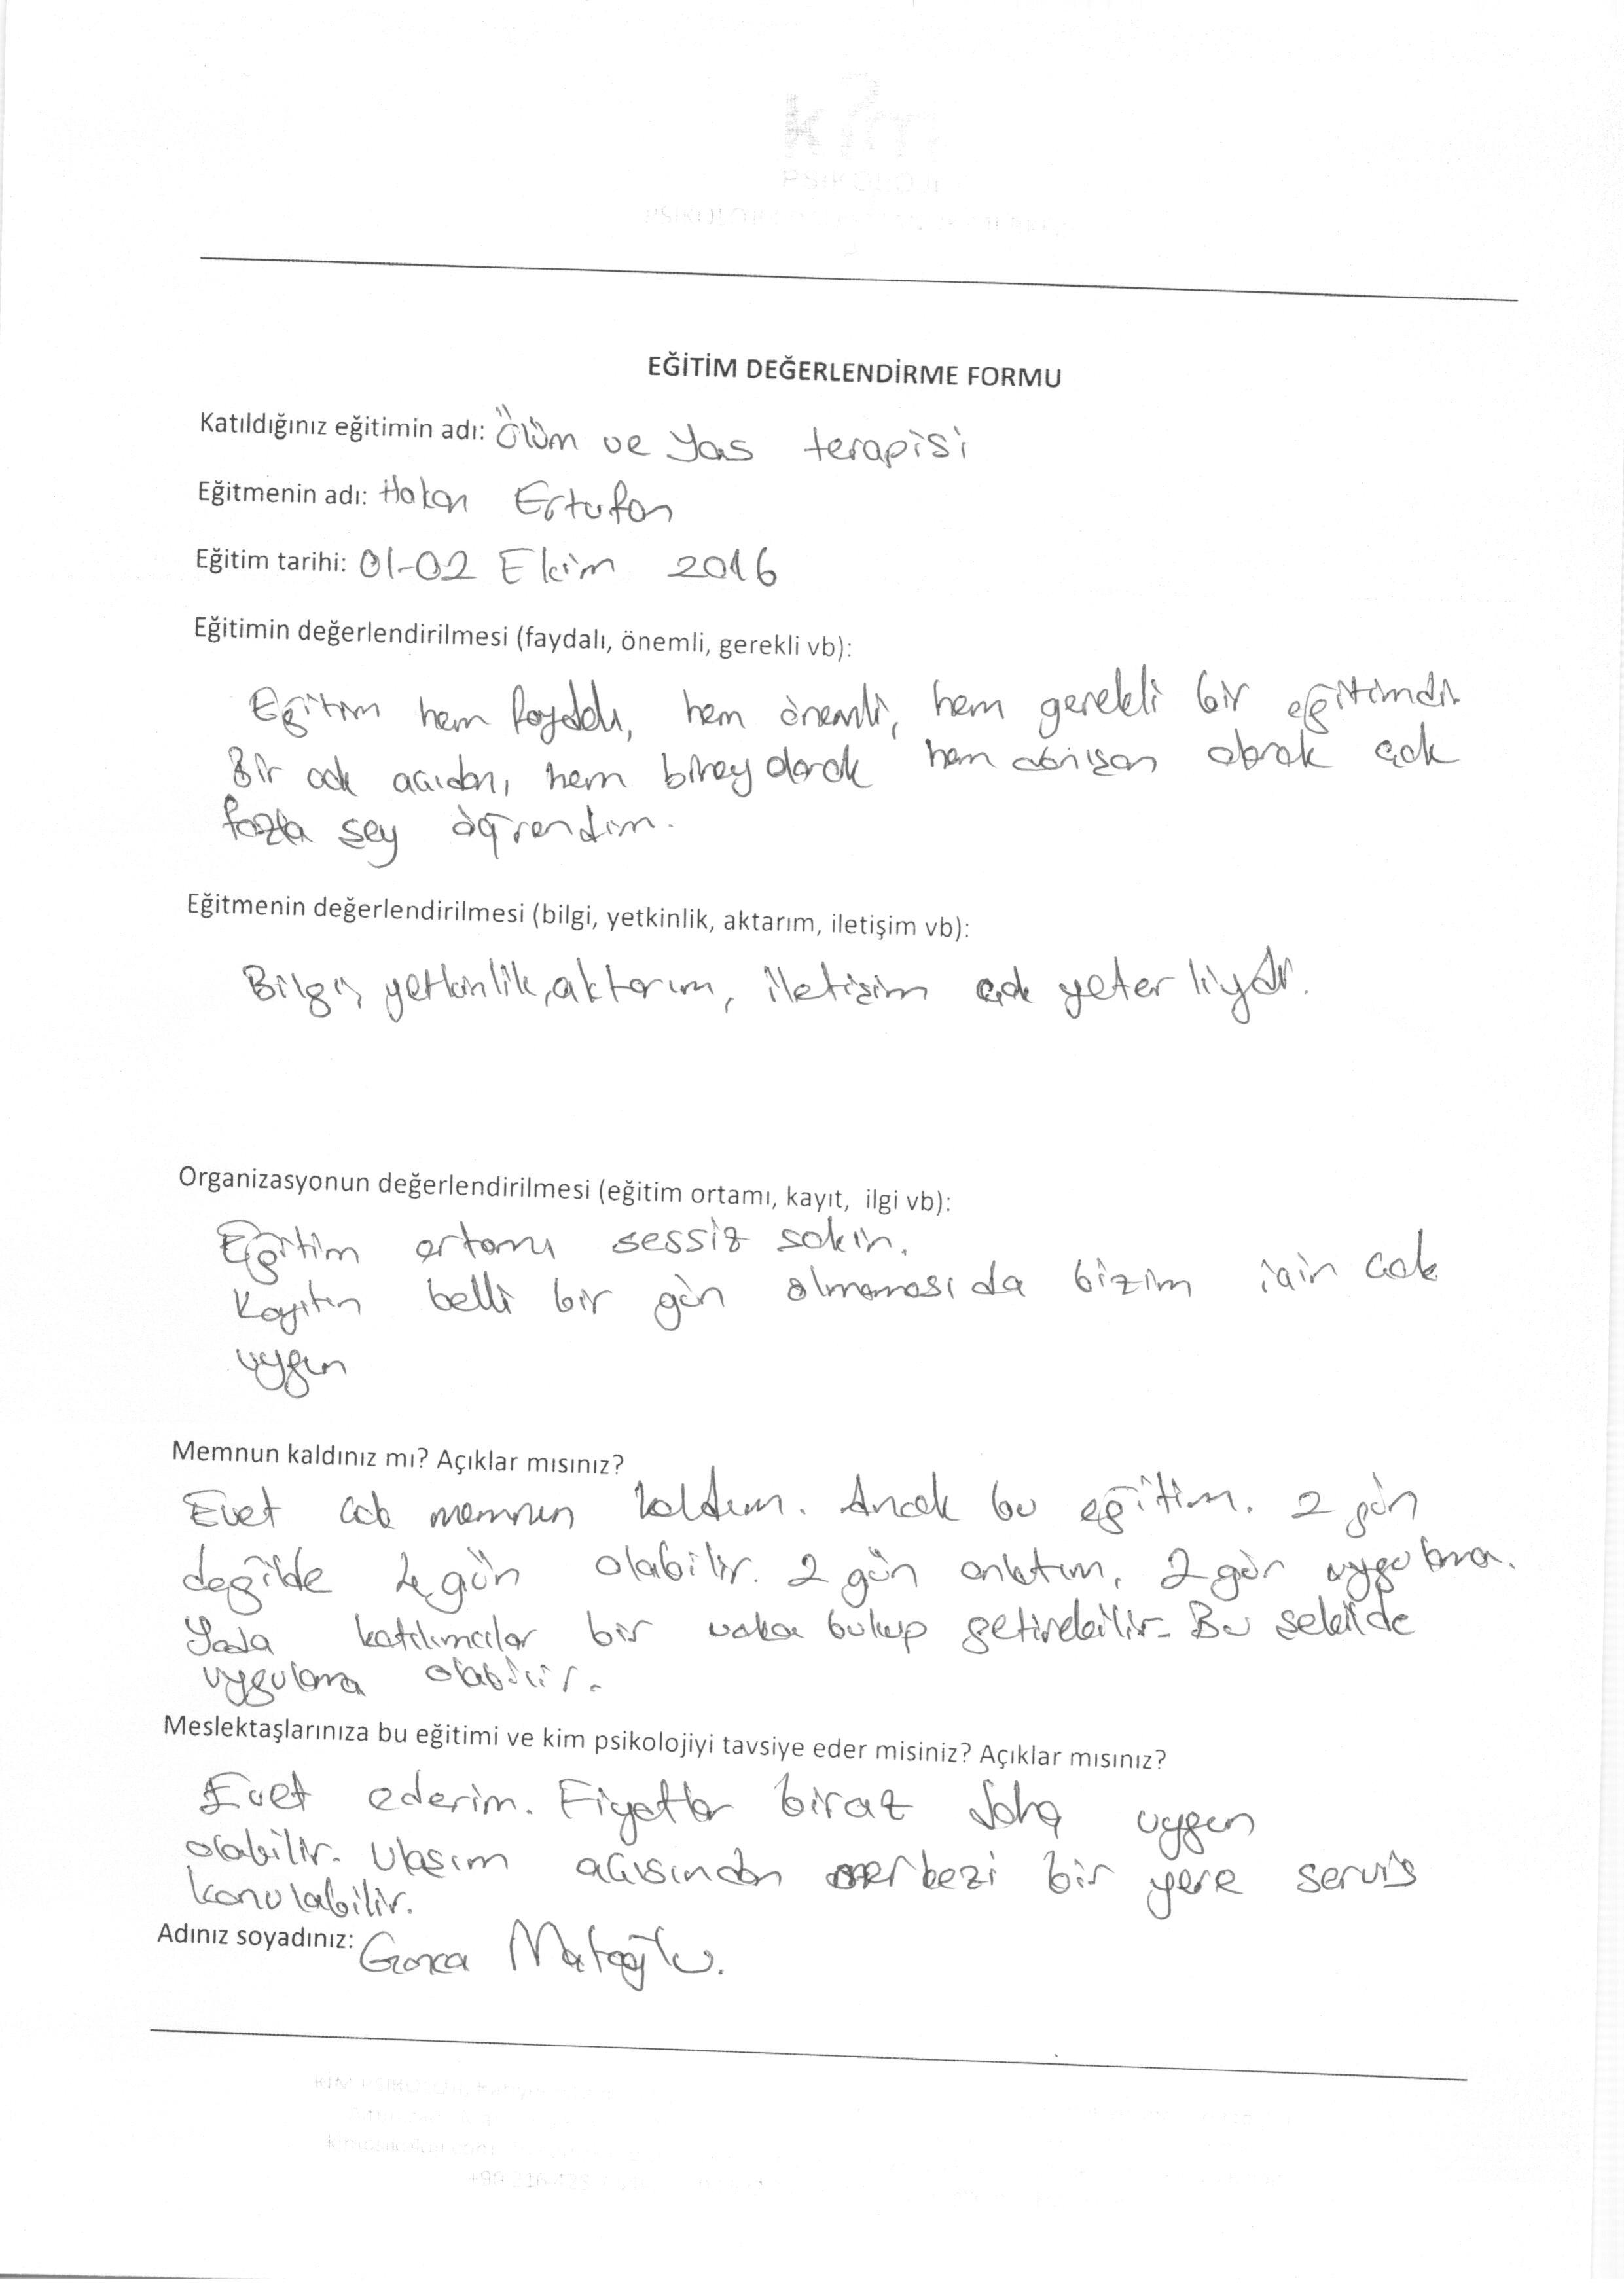 kim
PSİKOLOJİ
EĞİTİM DEĞERLENDİRME FORMU
Katıldığınız eğitimin adı: Ölüm ve Yas terapisi
Eğitmenin adı: Hakan Ertufan
Eğitim tarihi: 01-02 Ekim 2016
Eğitimin değerlendirilmesi (faydalı, önemli, gerekli vb):
Eğitim hem faydalı, hem önemli, hem gerekli bir eğitimdi.
Bir çok açıdan, hem birey olarak hem danışan olarak çok
fazla şey öğrendim.
Eğitmenin değerlendirilmesi (bilgi, yetkinlik, aktarım, iletişim vb):
Bilgi, yetkinlik, aktarım, iletişim çok yeterliydi.
Organizasyonun değerlendirilmesi (eğitim ortamı, kayıt, ilgi vb):
Eğitim ortamı sessiz sakin.
Kayıtın belli bir gün olmaması da bizim için çok
uygun
Memnun kaldınız mı? Açıklar mısınız?
Evet çok memnun kaldım. Ancak bu eğitim. 2 gün
değilde 4 gün olabilir. 2 gün anlatım, 2 gün uygulama.
Yada katılımcılar bir vaka bulup getirebilir. Bu şekilde
uygulama olabilir.
Meslektaşlarınıza bu eğitimi ve kim psikolojiyi tavsiye eder misiniz? Açıklar mısınız?
Evet ederim. Fiyatlar biraz daha uygun
olabilir. Ulaşım açısından merkezi bir yere servis
konulabilir.
Adınız soyadınız: Gonca